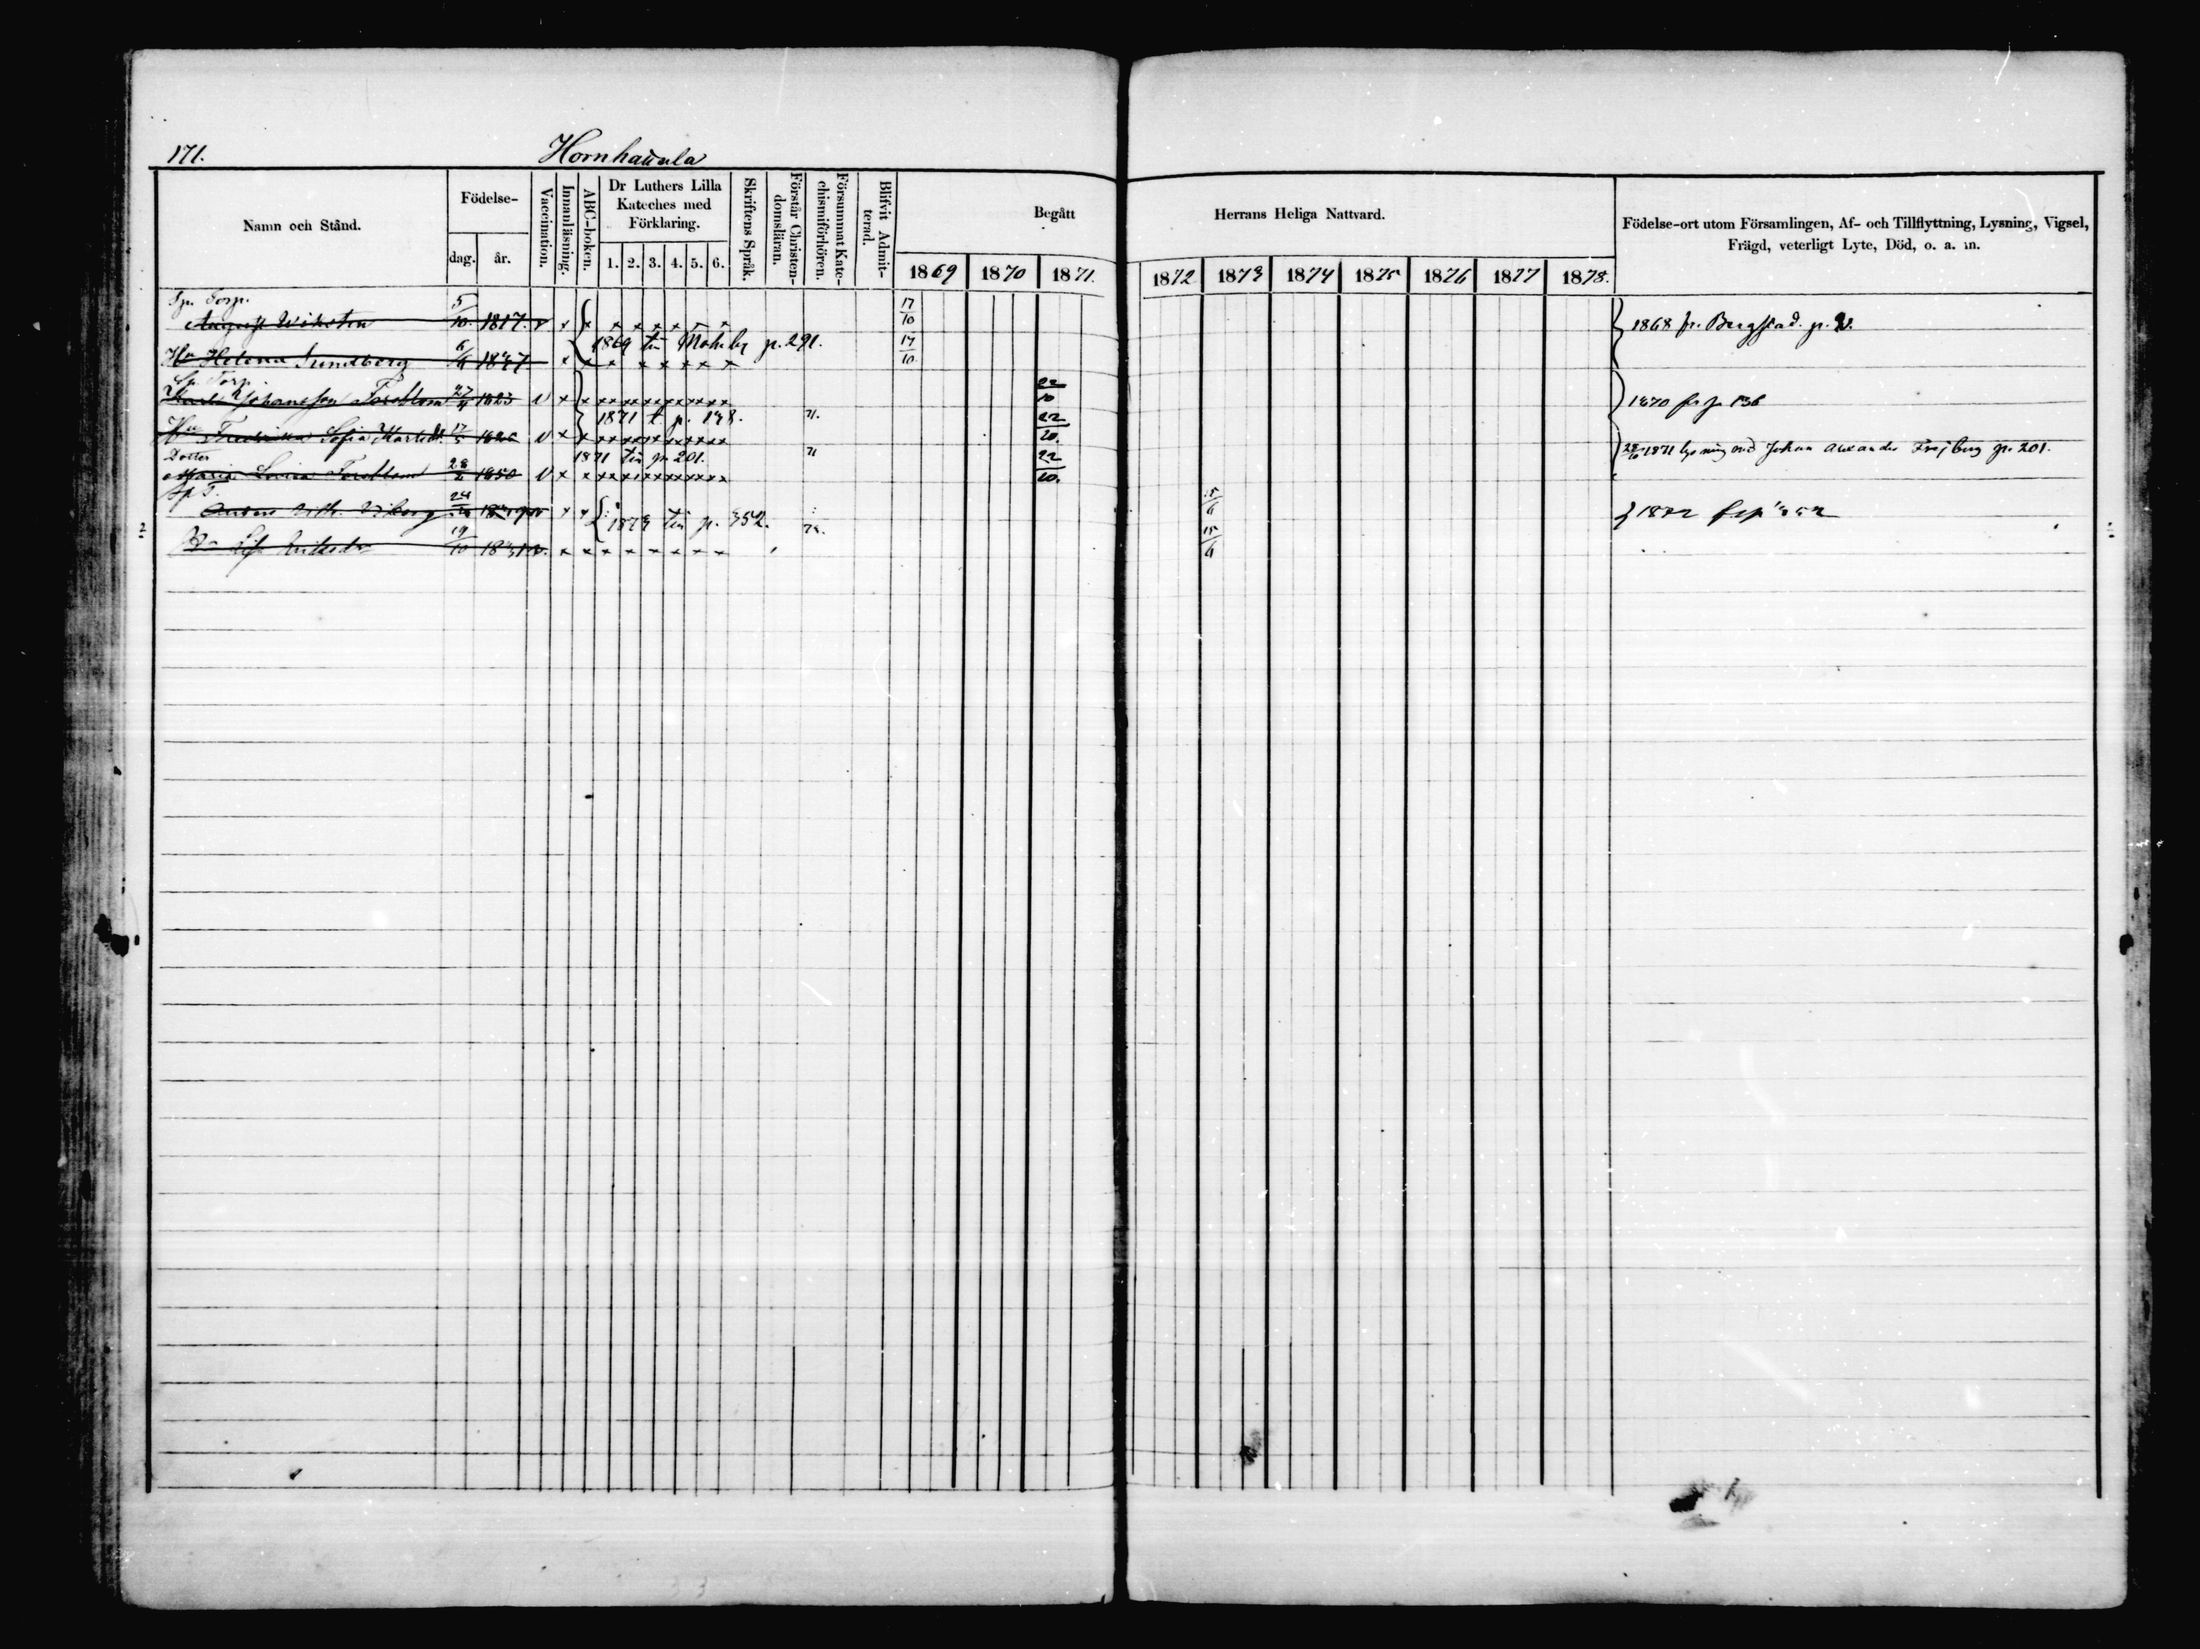 171. Hornhaurala
Namn och Stånd.
Födelse-
dag. år.
Vaccination.
Innanläsning.
ABC-boken.
Dr Luthers Lilla
Kateches med
Förklaring.
1. 2. 3. 4. 5. 6.
Skriftens Språk.
Förstår Christen-
domsläran.
Försummat Kate-
chismiförhören.
Blifvit Admit-
terad.
Begått Herrans Heliga Nattvard.
1869 1870 1871. 1872 1873 1874 1875 1876 1877 1878.
Födelse-ort utom Församlingen, Af- och Tillflyttning, Lysning, Vigsel,
Frägd, veterligt Lyte, Död, o. a. m.
Sp. Torp.
August Wiksten 5/10. 1817. v x x x x x x x x 17/10 1868 fr. Bergstad. p.
1869 till p. 291.
Hu Helena Sundberg 6/4 1837 x x x x x x x x 17/10
Sp. Torp.
Johansson Forsblom 27/4 1823 v x x x x x x x x 22/10 1870 fr p 136
1871 t. p. 138. 71.
Hu Fredrika Sofia Karlsdr 17/5 1826 v x x x x x x x x 22/10.
Dotter 1871 till p 201. 71
Maria Lovisa Forsblom 28/2 1850 v x x x x x x x x 22/10. 28/10 1871 lysning med Johan Alexander Frejberg p. 201.
Sp T.
Anders Wilh. Wiberg 24/ v x x 15/6 1872 fr p 352
1873 till p. 352. 72.
19/10 1831 v. x x x x x x x x 15/6